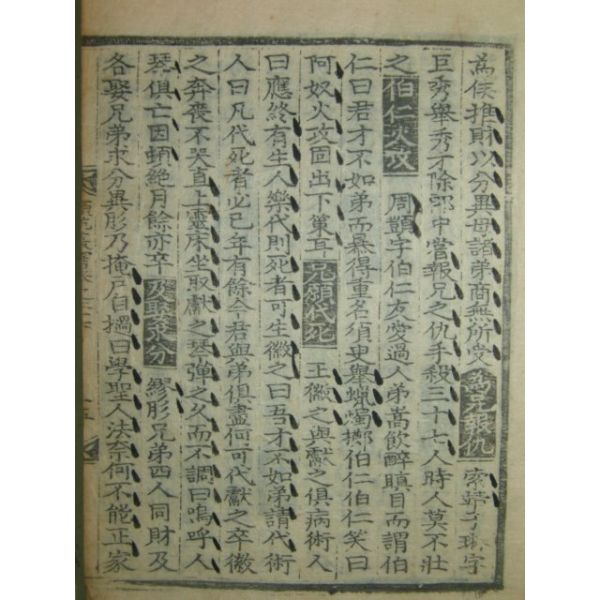 為侯推財以分異母諸弟商無所受 為兄報仇 索靖子綝字
巨秀舉秀才除郎中嘗報兄之仇手殺三十七人時人莫不壯
之 伯仁火攻 周顗字伯仁友愛過人弟嵩飮醉瞋目而謂伯
仁曰君才不如弟而暴得重名須臾舉蠟燭擲伯仁伯仁笑曰
阿奴火攻固出下策耳 兄願代死 王徽之與獻之俱病術人
曰應終有生人樂代則死者可生徽之曰吾才不如弟請代術
人曰凡代死者必已年有餘今君與弟俱盡何可代獻之卒徽
之奔喪不哭直上靈床坐取獻之琴彈之久而不調曰嗚呼人
琴俱亡因頓絶月餘亦卒 及娶求分 繆肜兄弟四人同財及
各娶兄弟求分異肜乃掩戶自撾曰學聖人法奈何不能正家